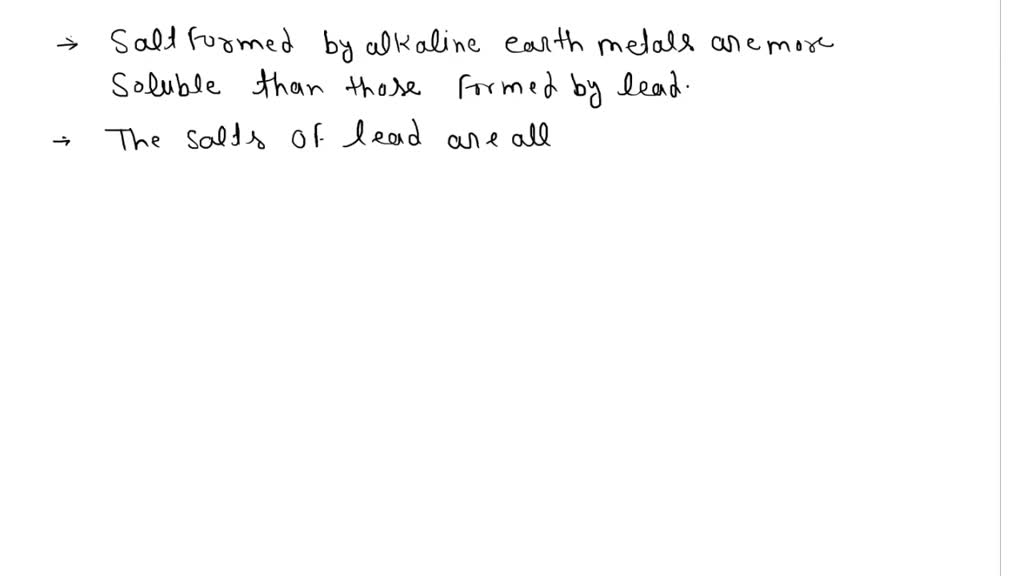 → Salt formed by alkaline earth metals are more
Soluble than those formed by lead.
→ The salts of lead are all